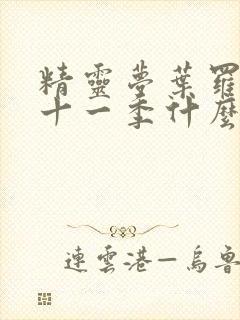 精靈夢葉羅
十一季什麼
連雲港—烏魯